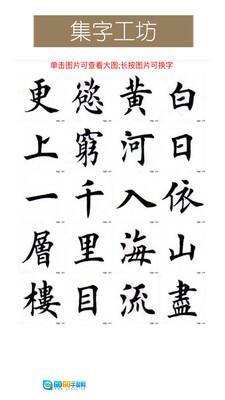 集字工坊
单击图片可查看大图;长按图片可换字
白日依山盡
黄河入海流
慾窮千里目
更上一層樓
GOGO